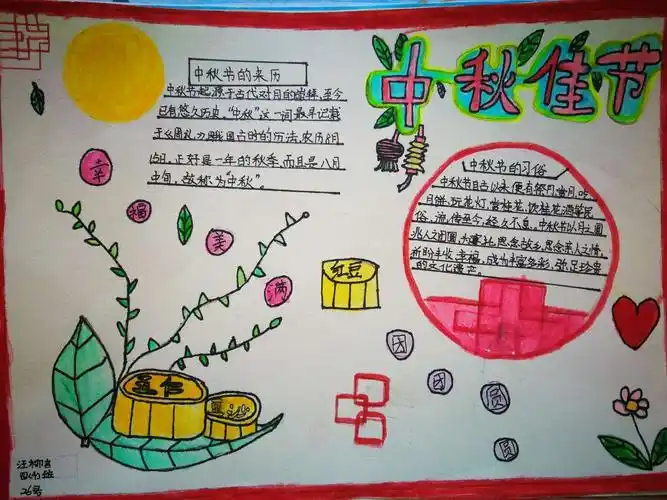 中秋佳节
中秋节的来历
中秋节起源于古代对月的崇拜,至今
已有悠久历史。"中秋"这一词最早记载
于《周礼》,
的历法,农历8月
15日,正好是一年的秋季,而且是八月
中旬,故称为"中秋"。
中秋节的习俗
中秋节自古以来便有祭月,赏月,吃
月饼,玩花灯,赏桂花,饮桂花酒等民
俗,流传至今,经久不息。中秋节以月之圆
兆人之团圆,为寄托思念故乡,思念亲人之情,
祈盼丰收、幸福,成为丰富多彩,弥足珍贵
的文化遗产。
幸
福
美
满
红豆
五仁
团
团
圆
圆
四(4)班
26号